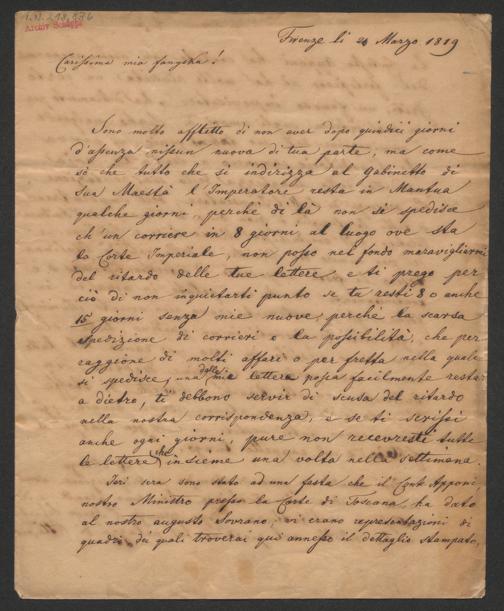 I.N. 218.876
Firenze li 24 Marzo 1819
Carissima mia
Sono molto afflitto di non aver dopo quindici giorni
d'assenza nissun nuova di tua parte, ma come
sò che tutto che si indirizza al Gabinetto di
sua Maestà l'Imperatore resta in Mantua
qualche giorni, perchè di là non si spedisce
ch'un corriere in 8 giorni, al luogo ove sta
la Corte Imperiale, non posso nel fondo maravigliarmi
del ritardo delle tue lettere e ti prego per
ciò di non inquietarti punto se tu resti 8 o anche
15 giorni senza mie nuove, perchè la scarsa
spedizione di corrieri e la possibilità, che per
raggione di molti affari o per fretta nella quale
si spedisce, una delle mie lettere possa facilmente restar
a dietro, ti debbono servir di scusa del ritardo
nella nostra corrispondenza, e se ti scrissi
anche ogni giorni, pure non recevresti tutte
le lettere che insieme una volta nella settimana.
Jeri sera sono stato ad una festa che il Conte Apponi
nostro Ministro presso la Corte di Toscana, ha dato
al nostro augusto Sovrano; vi erano representazioni di
quadri, dei quali troverai qui annesso il dettaglio stampato,